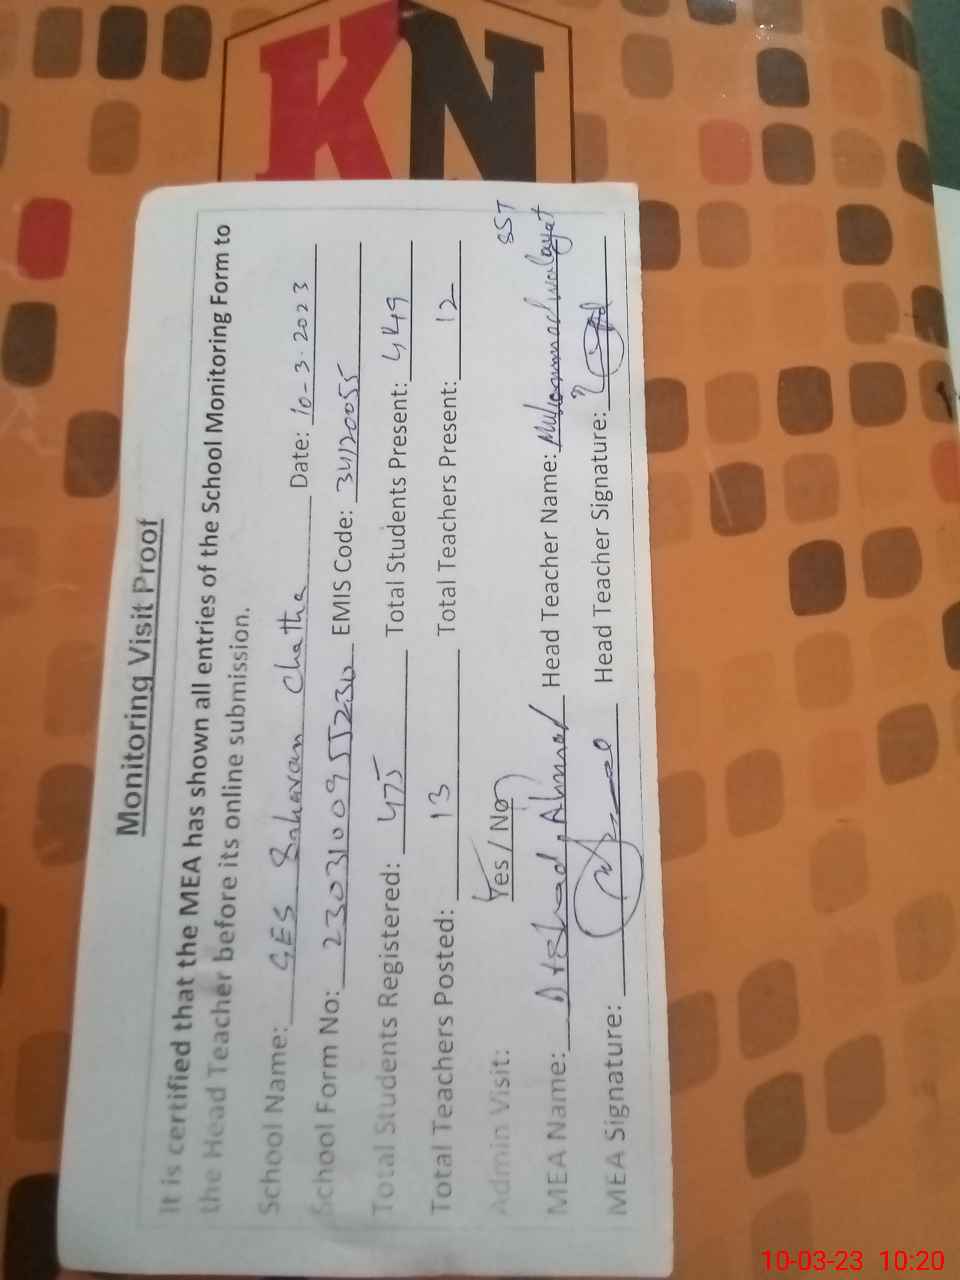 KN
Monitoring Visit Proof
It is certified that the MEA has shown all entries of the School Monitoring Form to
the Head Teacher before its online submission.
School Name: GES Saharan Chatha Date: 10-3-2023
School Form No: 23031009551230 EMIS Code: 34120055
Total Students Registered: 475 Total Students Present: 449
Total Teachers Posted: 13 Total Teachers Present: 12
Admin Visit: Yes / No SST
MEA Name: Ahmad Head Teacher Name: Muhammad walayat
MEA Signature: Head Teacher Signature:
10-03-23 10:20